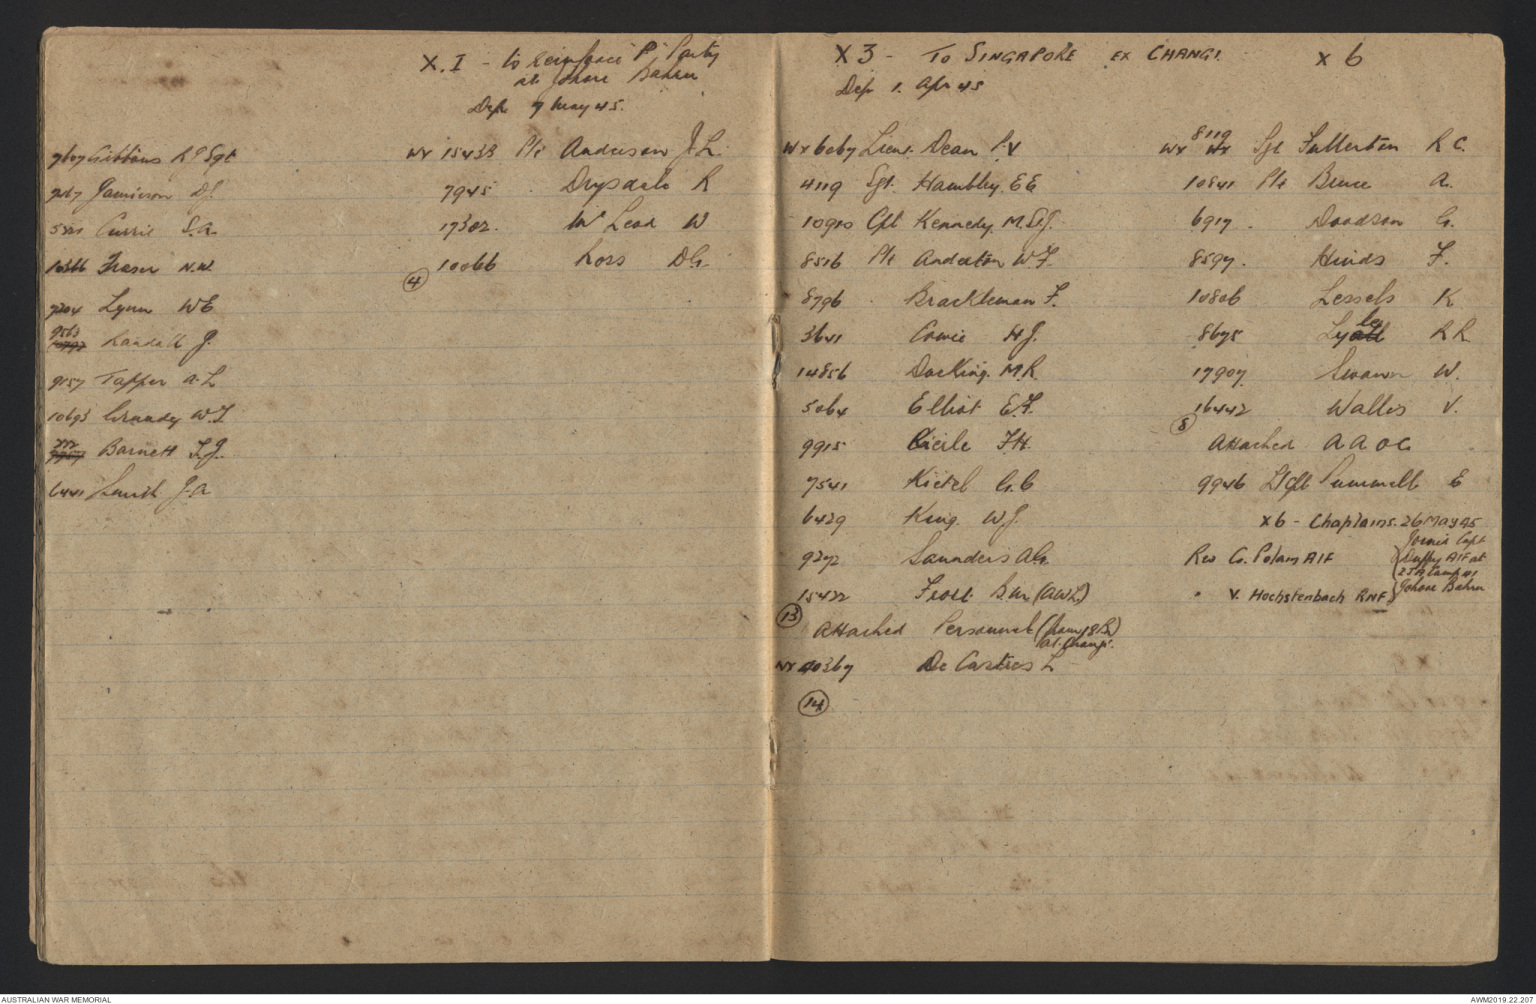 7607 Gibbons R P Sgt
7267 Jamieson D J
Currie S.A.
10366 Fraser N.W.
7204 Lynn W E
9563
Randall J.
9157 Tapper A.L
10693 Grundy W.T
Barnett F.J.
6441 Smith J.A
X.1 - to reinforce P. Party
at Johore Bahru
Dep 7 May 45.
WX 15433 Pte Anderson J.L.
7945 Drysdale R
17302. McLeod W
10066 Ross D G.
(4)
X3 - TO SINGAPORE EX CHANGI.
Dep 1. Apr 45
WX 6067 Lieut. Dean P.V
4119 Sgt. Hambley E E
10910 Cpl Kennedy. M.St.J.
8516 Pte Anderton W.F.
8796 . Brackleman F.
3641 Cowie H J.
14856 Docking. M.R
5064 Elliot E.F.
9915 Eierle F.H.
7541 Kietel G.C
6429 King. W.J.
9272 Saunders A.G.
15422 Frost. B.W (AWL)
(13)
Attached Personnel (from 18 Div
at Changi.)
NX 40367 De Castres L
(14)
X 6
8119
WX Sgt Fullerton R C.
10841 Pte Bruce A.
6917 . Doodson G.
8597 . Hinds F.
10806 Lessels K
8675 Lyall R R.
17907 Swann W.
16442 Wallis V.
(8)
Attached A A O C
9946 L/Sgt Pummell E
X6 - Chaplains. 26 May 45
Rev G. Polain AIF
" V. Hochstenbach RNF
Joined Capt
Duffy AIF at
Camp at
Johore Bahru
AUSTRALIAN WAR MEMORIAL
AWM2019.22.207